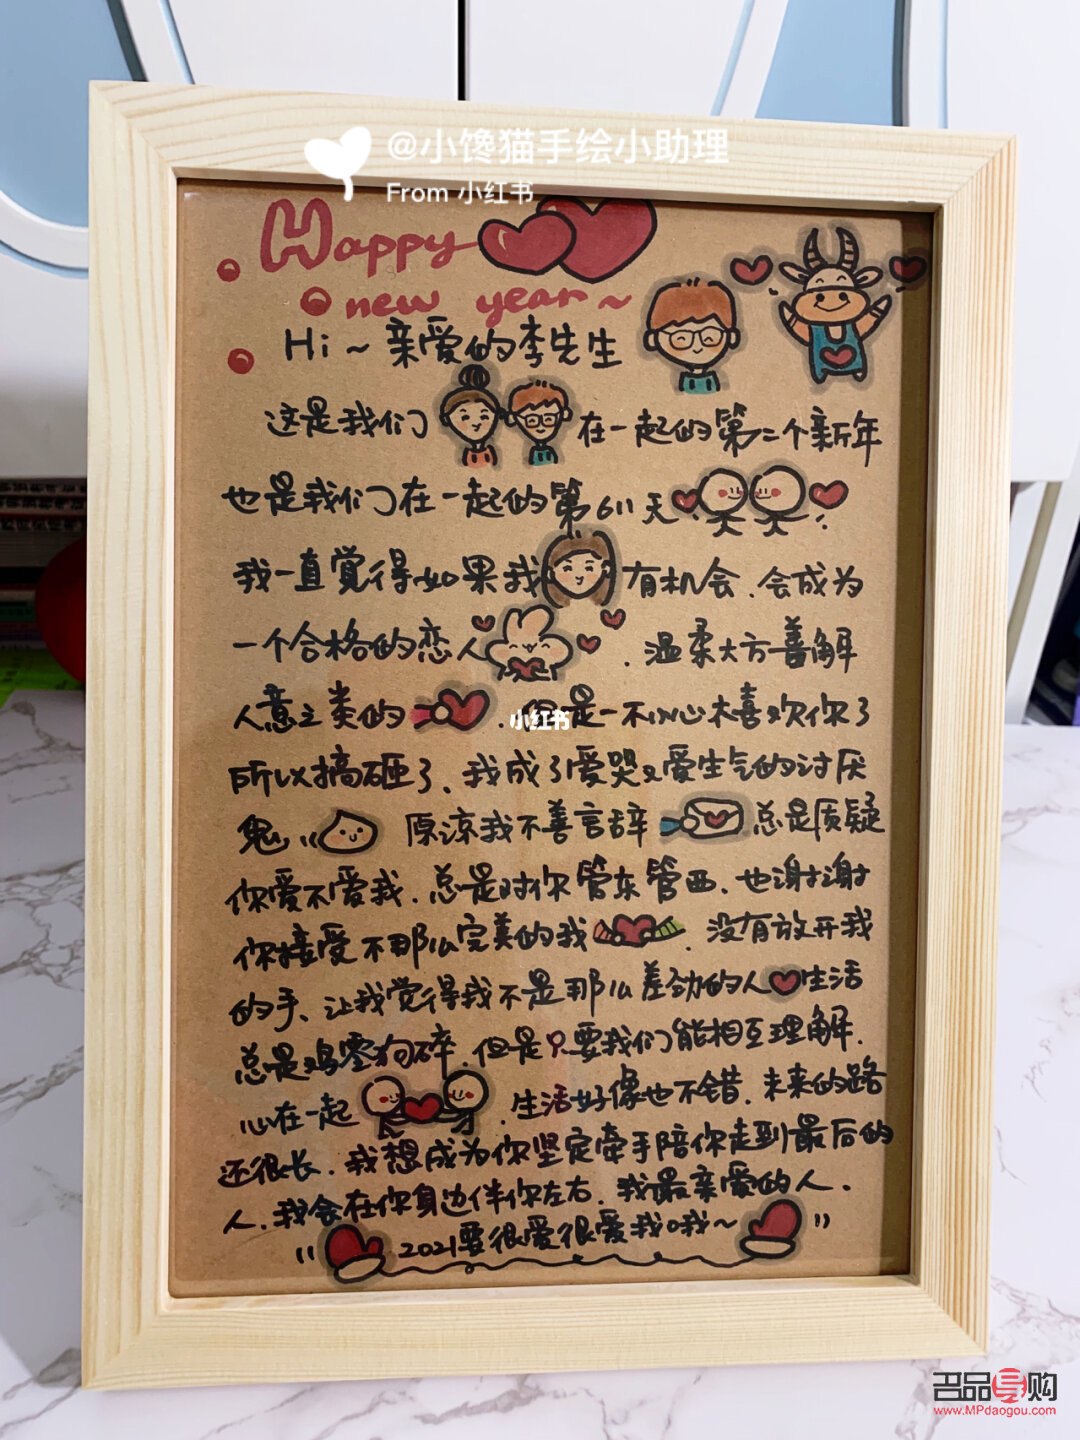 @小馋猫手绘小助理
From 小红书
Happy
new year~
Hi~亲爱的李先生
这是我们在一起的第二个新年
也是我们在一起的第611天
我一直觉得如果我有机会.会成为
一个合格的恋人.温柔大方善解
人意之类的.但是一不小心太喜欢你了
小红书
所以搞砸了、我成了爱哭又爱生气的讨厌
鬼 原谅我不善言辞 总是质疑
你爱不爱我.总是对你管东管西.也谢谢
你接受不那么完美的我.没有放开我
的手、让我觉得我不是那么差劲的人 生活
总是鸡零狗碎.但是只要我们能相互理解.
心在一起.生活好像也不错.未来的路
还很长.我想成为你坚定牵手陪你走到最后的
人.我会在你身边伴你左右.我最亲爱的人.
"2021要很爱很爱我哦~"
名品导购
www.MPdaogou.com